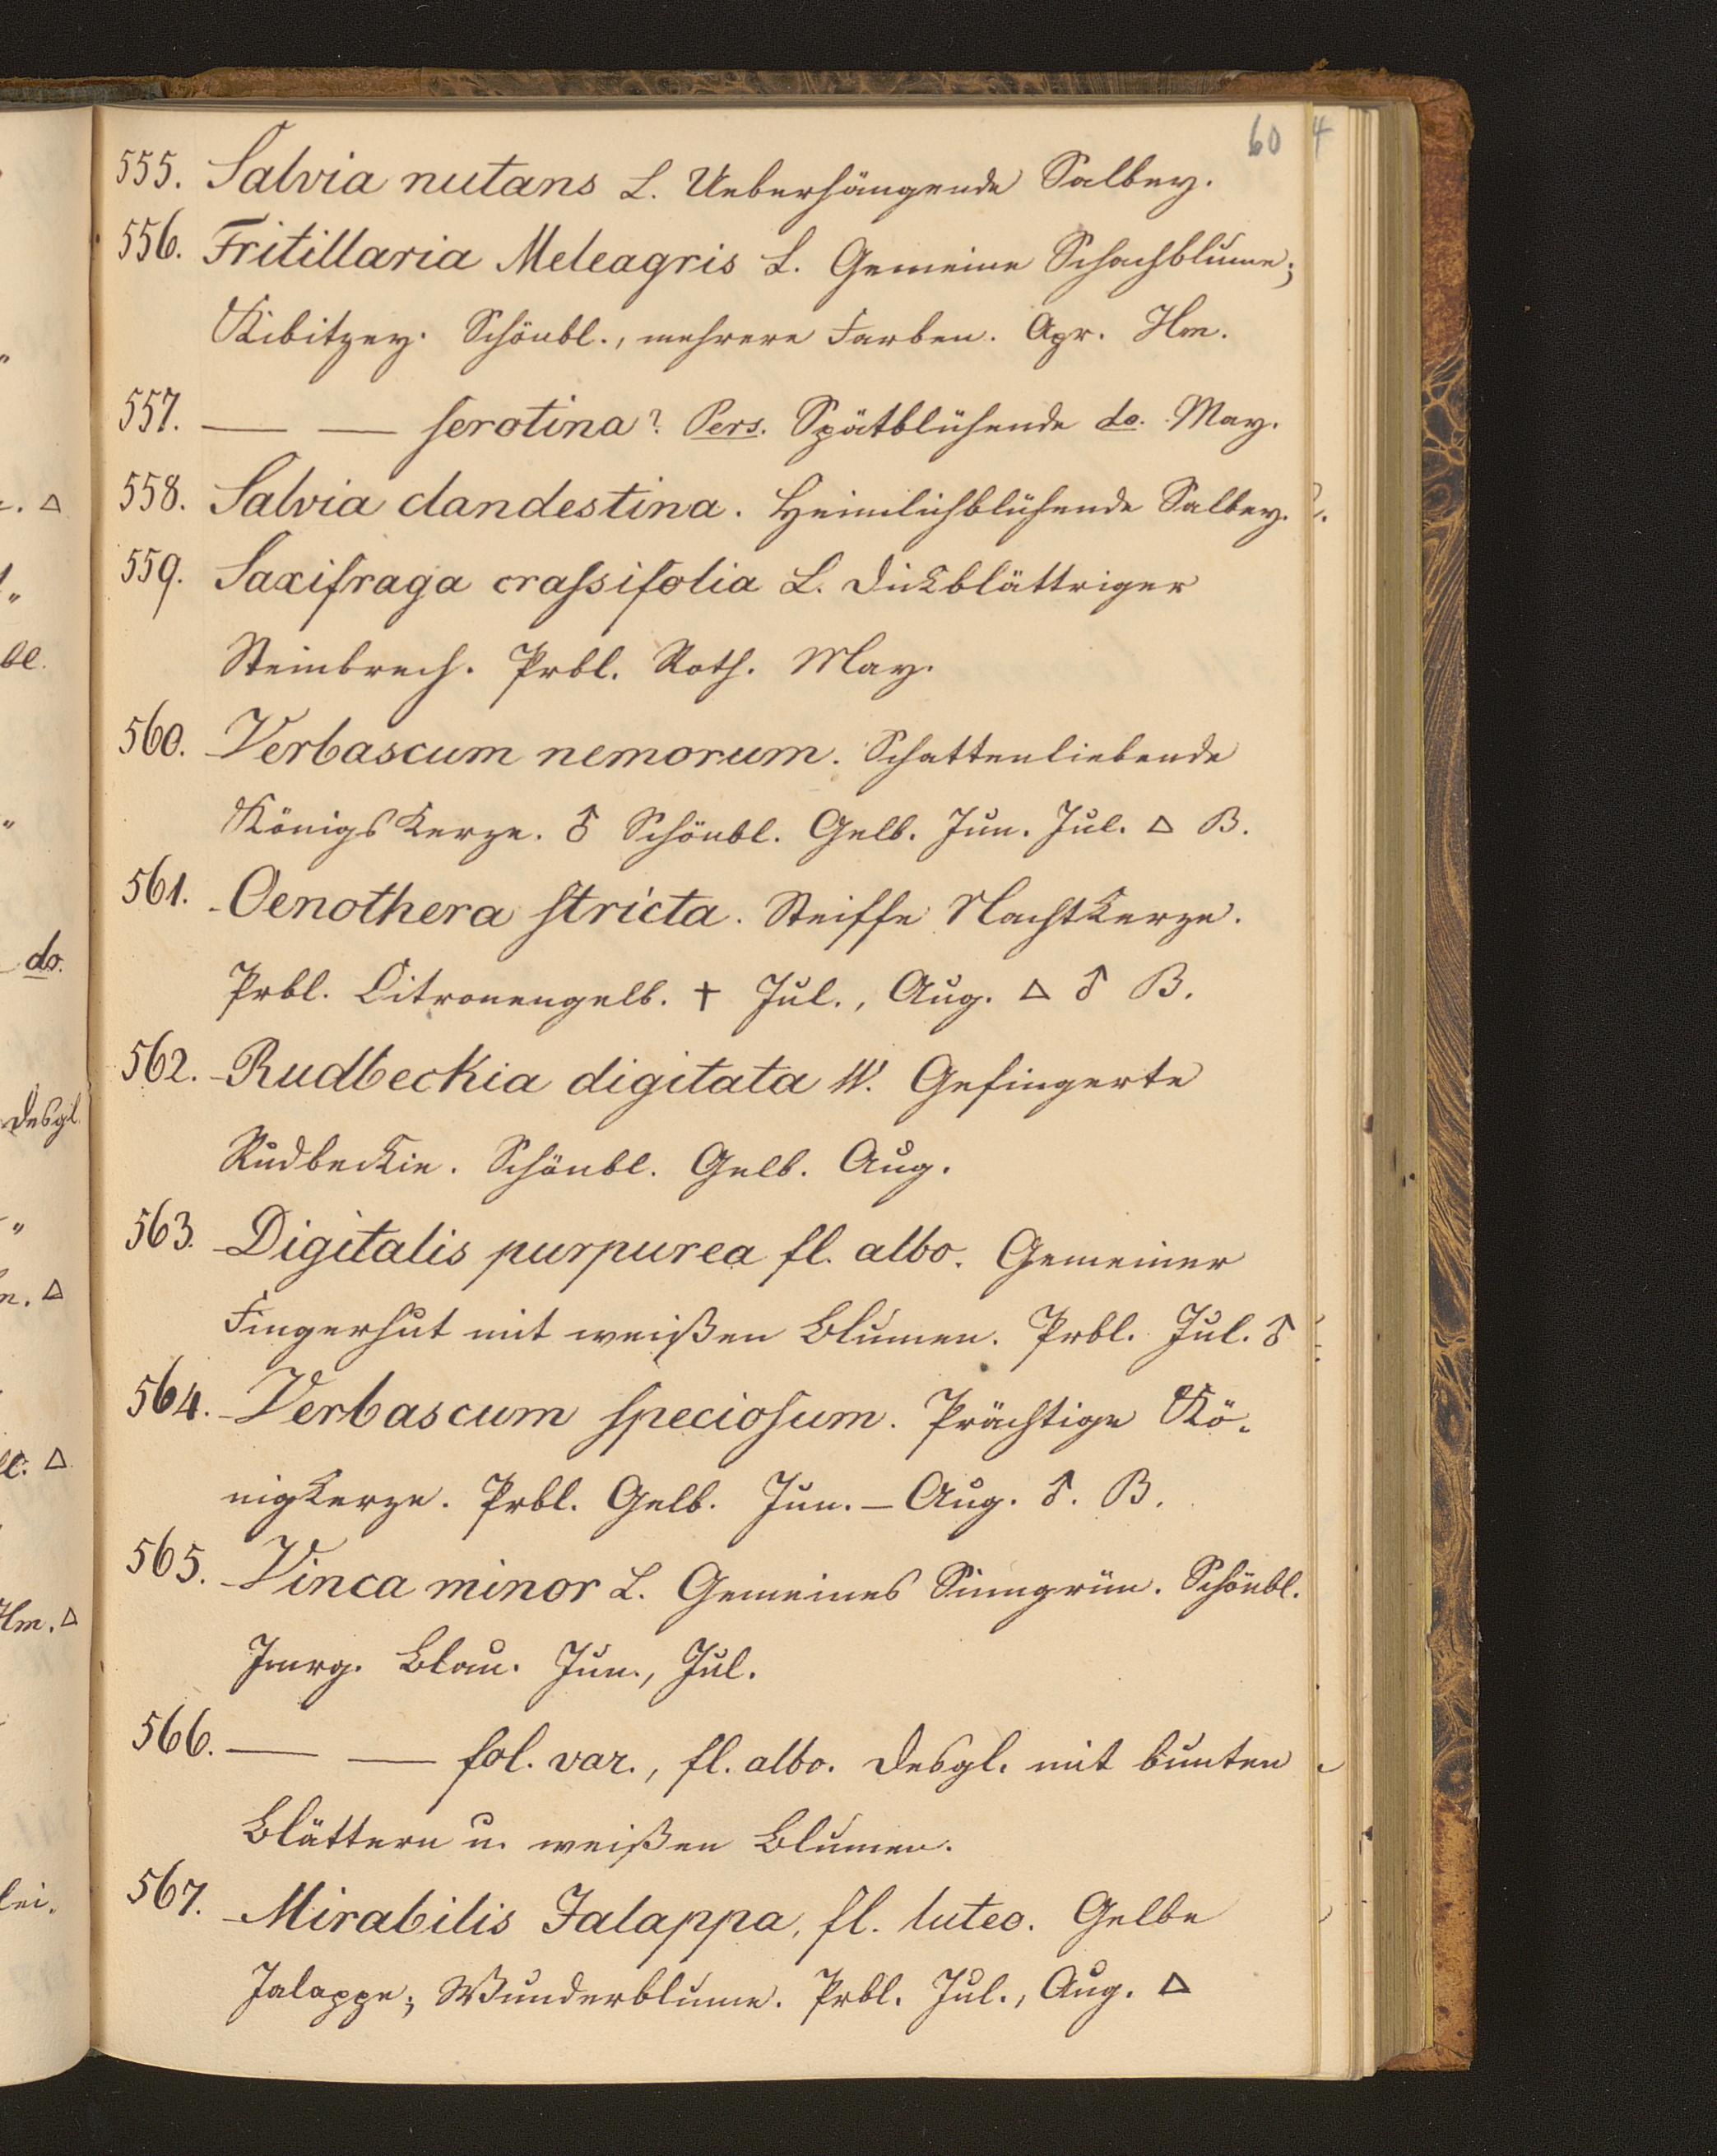 60
555. Salvia nutans L. Ueberhängende Salbey.
556. Fritillaria Meleagris L. Gemeine Schachblume;
Kibitzey. Schönbl., mehrere Farben. Apr. Hm.
557. — — serotina? Pers. Spätblühende do. May.
558. Salvia clandestina. Heimlichblühende Salbey.
559. Saxifraga craſsifolia L. Dickblättriger
Steinbrech. Prbl. Roth. May.
560. Verbascum nemorum. Schattenliebende
Königskerze. ♂ Schönbl. Gelb. Jun. Jul. △ B.
561. Oenothera ſtricta. Steiffe Nachtkerze.
Prbl. Citronengelb. † Jul., Aug. △ ♂ B.
562. Rudbeckia digitata W. Gefingerte
Rudbeckie. Schönbl. Gelb. Aug.
563. Digitalis purpurea fl. albo. Gemeiner
Fingerhut mit weißen Blumen. Prbl. Jul. ♂
564. Verbascum ſpecioſum. Prächtige Kö-
nigkerze. Prbl. Gelb. Jun. — Aug. ♂. B.
565. Vinca minor L. Gemeines Sinngrün. Schönbl.
Jmrg. Blau. Jun., Jul.
566. — — fol. var., fl. albo. Desgl. mit bunten
Blättern u. weißen Blumen.
567. Mirabilis Jalappa, fl. luteo. Gelbe
Jalappe; Wunderblume. Prbl. Jul., Aug. △